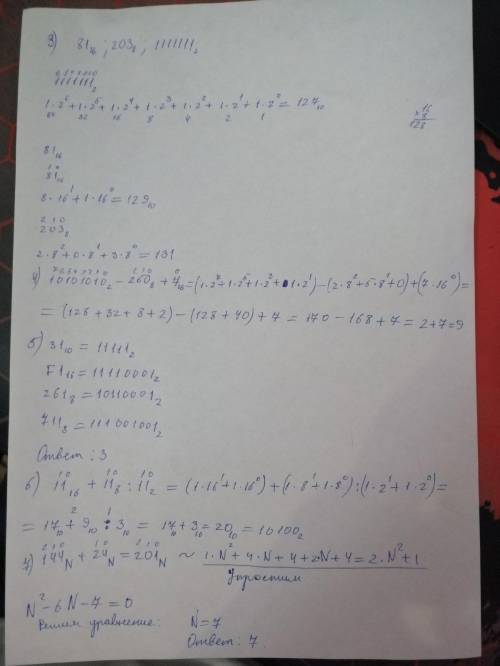 3) 81₁₆ ; 203₈ ; 1111111₂
6 5 4 3 2 1 0
1111111₂
1·2⁶+1·2⁵+1·2⁴+1·2³+1·2²+1·2¹+1·2⁰=127₁₀
64 32 16 8 4 2 1
16
×8
128
81₁₆
1 0
81₁₆
8·16¹+1·16⁰=129₁₀
2 1 0
203₈
2·8²+0·8¹+3·8⁰=131
7 6 5 4 3 2 1 0 2 1 0 0
4) 10101010₂-250₈+7₁₆=(1·2⁷+1·2⁵+1·2³+1·2¹)-(2·8²+5·8¹+0)+(7·16⁰)=
=(128+32+8+2)-(128+40)+7=170-168+7=2+7=9
5) 31₁₀=11111₂
F1₁₆=11110001₂
261₈=10110001₂
711₈=111001001₂
Ответ: 3
1 0 1 0 1 0
6) 11₁₆+11₈:11₂=(1·16¹+1·16⁰)+(1·8¹+1·8⁰):(1·2¹+1·2⁰)=
2 1
=17₁₀+9₁₀:3₁₀=17₁₀+3₁₀=20₁₀=10100₂
2 1 0 1 0 2 1 0
7) 144_N+24_N=201_N ~ 1·N²+4·N+4+2·N+4=2·N²+1
Упростим
N²-6N-7=0
Решим уравнение: N=7
Ответ: 7